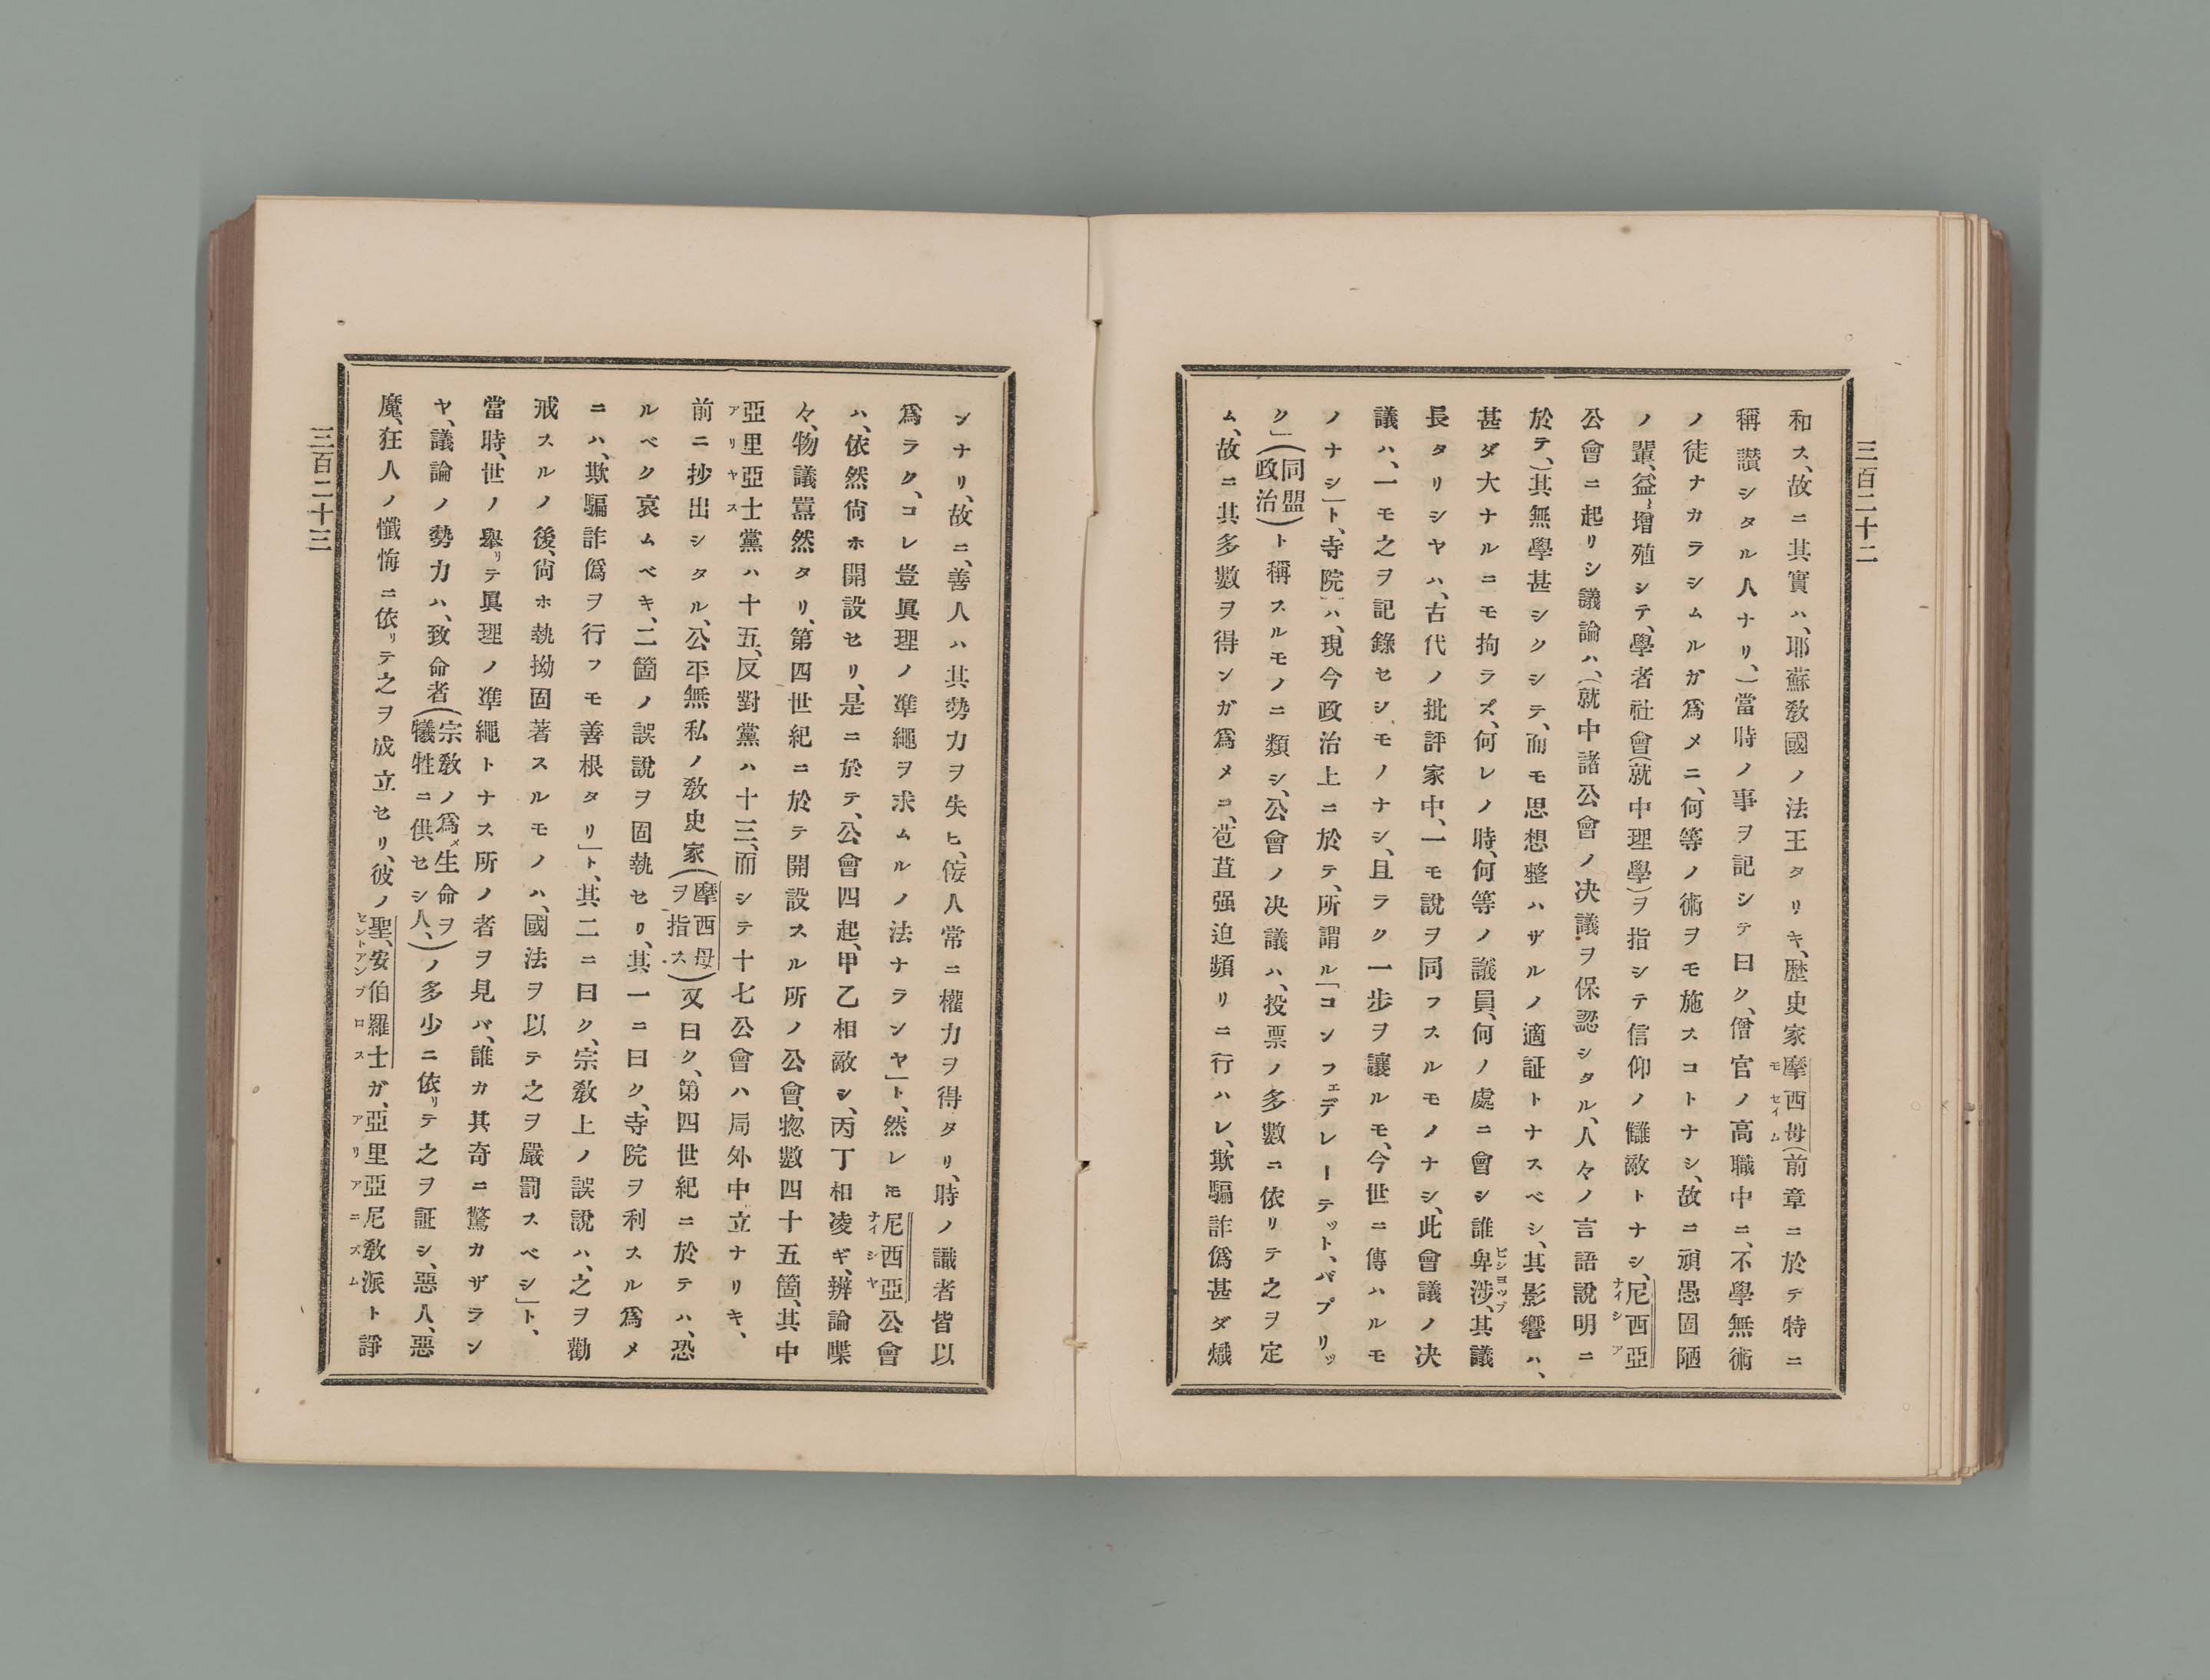 三百二十二
和ス、故ニ其實ハ、耶蘇敎國ノ法王タリキ、歴史家摩西母(前章ニ於テ特ニ
モセイム
稱讃シタル人ナリ、)當時ノ事ヲ記シテ曰ク、僧官ノ高職中ニ、不學無術
ノ徒ナカラシムルガ爲メニ、何等ノ術ヲモ施スコトナシ、故ニ頑愚固陋
ノ輩、益〻增殖シテ、學者社會(就中理學)ヲ指シテ信仰ノ讎敵トナシ、尼西亞
ナイシア
公會ニ起リシ議論ハ、(就中諸公會ノ决議ヲ保認シタル、人々ノ言語說明ニ
於テ、)其無學甚シクシテ、而モ思想整ハザルノ適証トナスベシ、其影響ハ、
甚ダ大ナルニモ拘ラズ、何レノ時、何等ノ議員、何ノ處ニ會シ誰卑涉、其議
ビシヨップ
長タリシヤハ、古代ノ批評家中、一モ說ヲ同フスルモノナシ、此會議ノ决
議ハ、一モ之ヲ記錄セシモノナシ、且ラク一步ヲ讓ルモ、今世ニ傳ハルモ
ノナシ」ト、寺院ハ、現今政治上ニ於テ、所謂ル「コンフェデレーテット、パブリッ
ク」(同盟政治)ト稱スルモノニ類シ、公會ノ决議ハ、投票ノ多數ニ依リテ之ヲ定
ム、故ニ其多數ヲ得ンガ爲メニ、苞苴强迫頻リニ行ハレ、欺騙詐僞甚ダ熾
ンナリ、故ニ、善人ハ其勢力ヲ失ヒ、侫人常ニ權力ヲ得タリ、時ノ識者皆以
爲ラク、コレ豈眞理ノ凖繩ヲ求ムルノ法ナランヤ」ト、然レモ尼西亞公會
ナイシヤ
ハ、依然尙ホ開設セリ、是ニ於テ、公會四起、甲乙相敵シ、丙丁相凌ギ、辨論喋
々、物議囂然タリ、第四世紀ニ於テ開設スル所ノ公會、惣數四十五箇、其中
亞里亞士黨ハ十五、反對黨ハ十三、而シテ十七公會ハ局外中立ナリキ、
アリヤス
前ニ抄出シタル、公平無私ノ敎史家(摩西母ヲ指ス)又曰ク、第四世紀ニ於テハ、恐
ルベク哀ムベキ、二箇ノ誤說ヲ固執セリ、其一ニ曰ク、寺院ヲ利スル爲メ
ニハ、欺騙詐僞ヲ行フモ善根タリ」ト、其二ニ曰ク、宗敎上ノ誤說ハ、之ヲ勸
戒スルノ後、尙ホ執拗固著スルモノハ、國法ヲ以テ之ヲ嚴罰スベシ」ト、
當時、世ノ擧リテ眞理ノ凖繩トナス所ノ者ヲ見バ、誰カ其奇ニ驚カザラン
ヤ、議論ノ勢力ハ、致命者(宗敎ノ爲メ生命ヲ犧牲ニ供セシ人、)ノ多少ニ依リテ之ヲ証シ、惡人、惡
魔、狂人ノ懺悔ニ依リテ之ヲ成立セリ、彼ノ聖、安伯羅士ガ、亞里亞尼敎派ト諍
セントアンブロス
アリアニズム
三百二十三